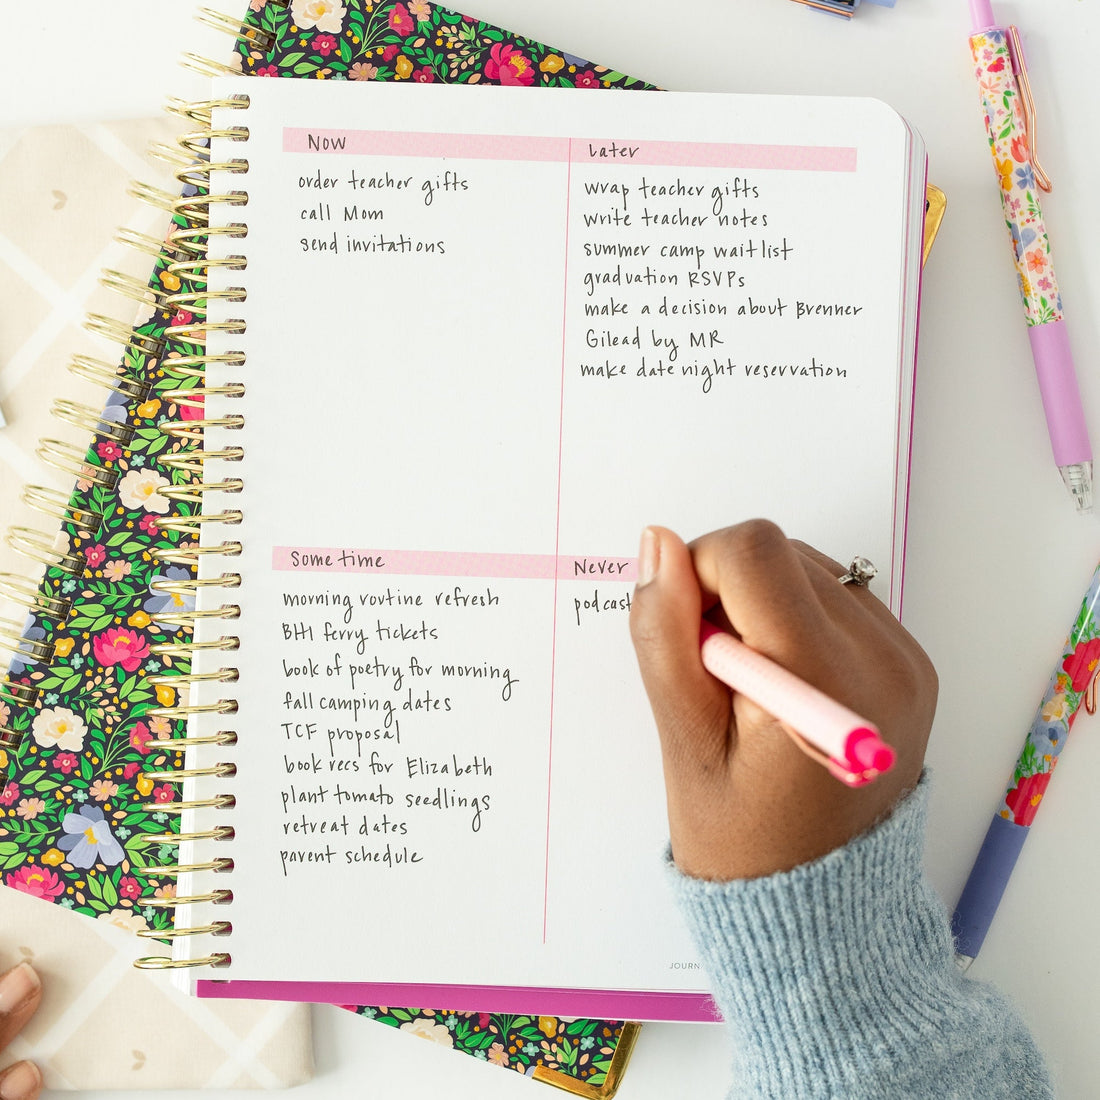 Now
order teacher gifts
call Mom
send invitations
Later
wrap teacher gifts
write teacher notes
summer camp waitlist
graduation RSVPs
make a decision about Brenner
Gilead by MR
make date night reservation
Sometime
morning routine refresh
BHI ferry tickets
book of poetry for morning
fall camping dates
TCF proposal
book recs for Elizabeth
plant tomato seedlings
retreat dates
parent schedule
Never
podcast
JOURN